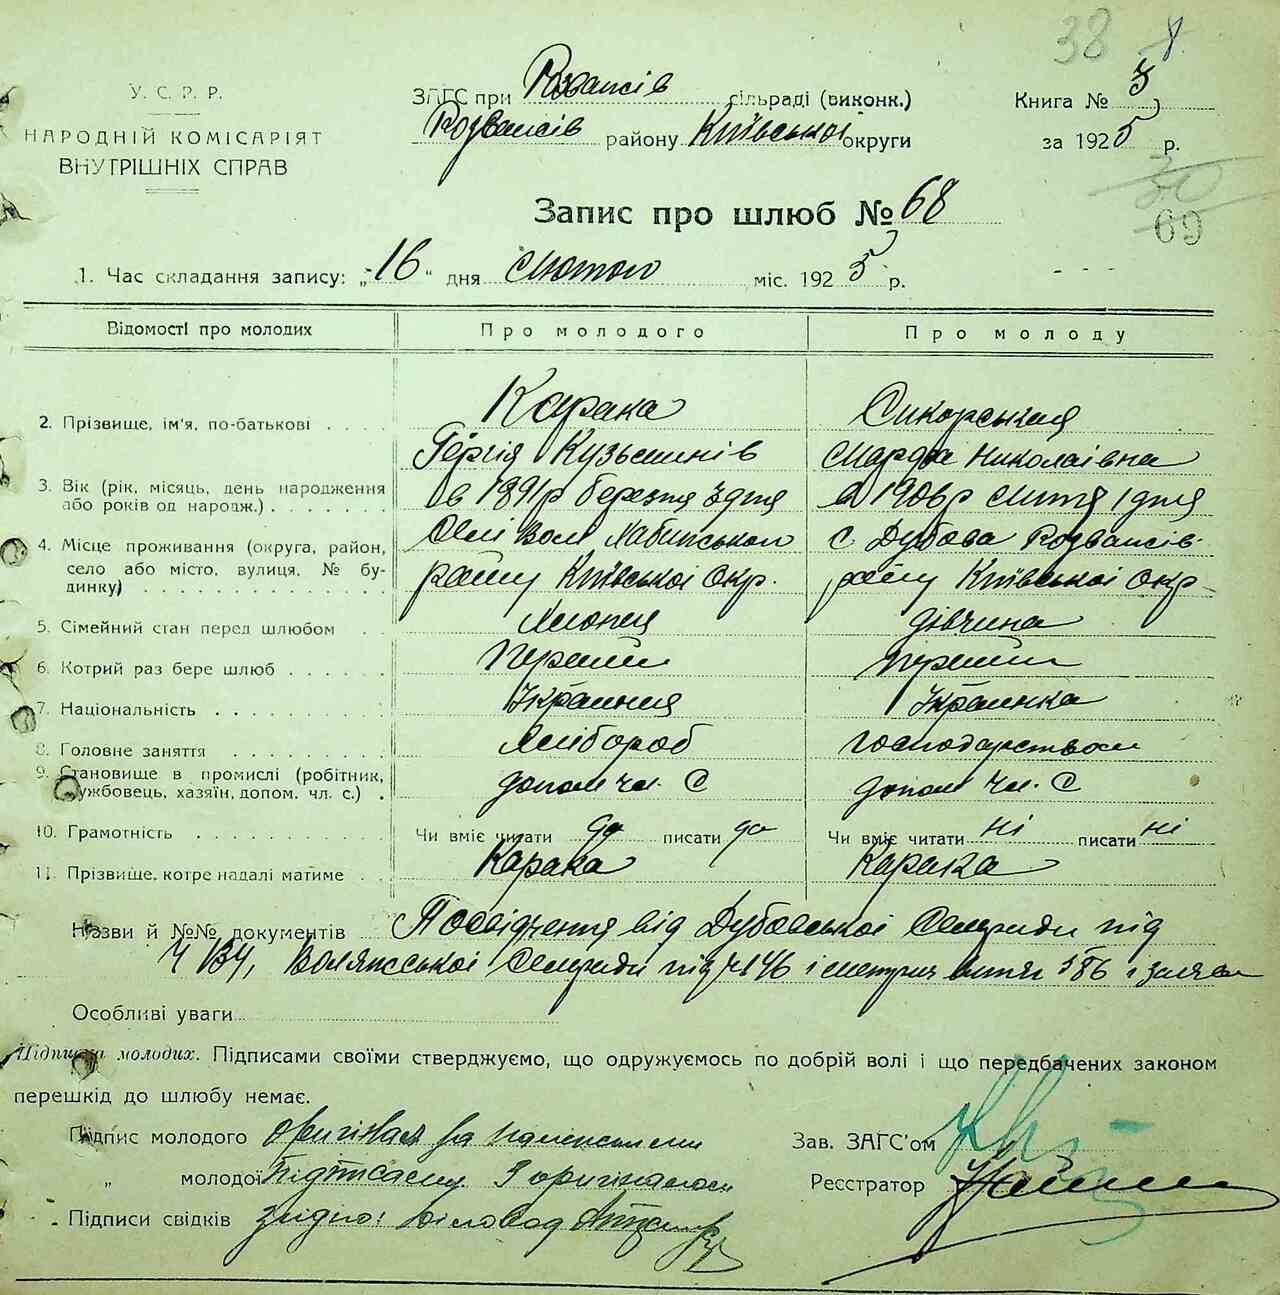 38 8
У. С. Р. Р.
НАРОДНІЙ КОМІСАРІЯТ
ВНУТРІШНІХ СПРАВ
ЗАГС при Розвансів сільраді (виконк.)
Розвансів району Київської округи
Книга № 3
за 1925 р.
30
69
Запис про шлюб № 68
1. Час складання запису: „16“ дня лютого міс. 1925 р.
Відомості про молодих Про молодого Про молоду
2. Прізвище, ім'я, по-батькові . . . Карака Сикорський
Гергія Кузьминів Марфа Николаівна
3. Вік (рік, місяць, день народження або років од народж.) . . . . . . в 1891р березня 3 дня в 1906р 1 дня
4. Місце проживання (округа, район, село або місто, вулиця, № будинку) . . . . . . Київської Окр. с Дубова Розвансів Київської Окр
5. Сімейний стан перед шлюбом . . Хлопец дівчина
6. Котрий раз бере шлюб . . . . . . Перший перший
7. Національність . . . . . . . . Україниця Українка
8. Головне заняття . . . . . . . Хлібороб господарством
9. Становище в промислі (робітник, службовець, хазяїн, допом. чл. с.) . допом чл. С допом чл. С
10. Грамотність . . . . . . . . Чи вміє читати да писати да Чи вміє читати ні писати ні
11. Прізвище, котре надалі матиме . Карака Карака
Назви й №№ документів Посвідчення від Дубовської Сельради під
Ч 134, Сельради під ч 146 і метрич витяг 586 і заява
Особливі уваги
Підписка молодих. Підписами своїми стверджуємо, що одружуємось по добрій волі і що передбачених законом
перешкід до шлюбу немає.
Підпис молодого оригінал за
„ молодої З оригіналом
Підписи свідків згідно: Діловод
Зав. ЗАГС'ом
Ресстратор